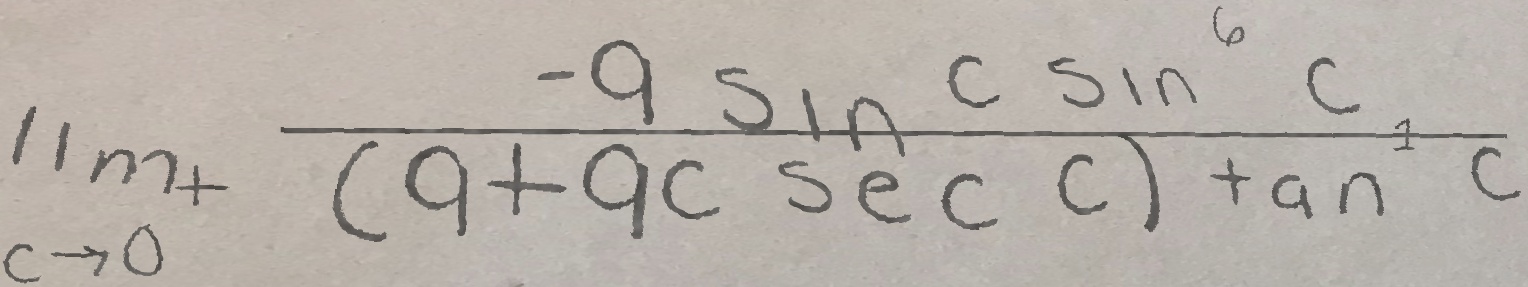 \lim_{c \to 0^+} \frac{-9 \sin c \sin^6 c}{(9+9c \sec c) \tan^1 c}